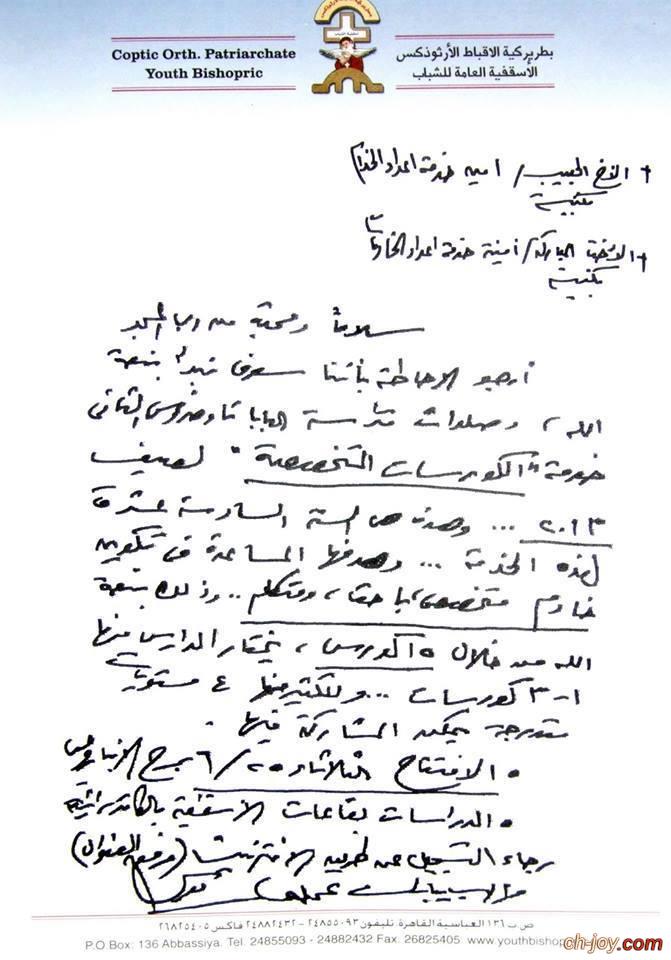 Coptic Orth. Patriarchate
Youth Bishopric
بطريركية الاقباط الأرثوذكس
الأسقفية العامة للشباب
+ الأخ الحبيب / أمين خدمة اعداد الخدام
بكنيسة
+ الأخت المباركة / أمينة خدمة اعداد الخادمات
بكنيسة
سلاماً ومحبة من رب المجد
أرجو الاحاطة بأننا سوف نبدأ بنعمة
الله، وصلوات قداسة البابا تاوضروس الثانى
خدمة "الكورسات المتخصصة" لصيف
٢٠١٣ ... وهذه هى السنة السادسة عشرة
لهذه الخدمة ... وهدفها المساعدة فى تكوين
خادم متخصص، باحث، ومتكلم .. وذلك بنعمة
الله من خلال ٥ كورس، يختار الدارس منها
١-٣ كورسات ... وللكثير منها ٤ مستويات
متدرجة يمكن المشاركة فيها.
• الافتتاح الثلاثاء ٢٥/٦ بمسرح الأنبا رويس
• الدراسات بقاعات الأسقفية بالكاتدرائية
رجاء التسجيل عن طريق الانترنت (مرفق العنوان)
والرب يبارك عملكم
ص ب ١٣٦ العباسية القاهرة تليفون ٢٤٨٥٥٠٩٣ - ٢٤٨٨٢٤٣٢ فاكس ٢٦٨٢٥٤٠٥
P.O Box: 136 Abbassiya. Tel. 24855093 - 24882432 Fax: 26825405 www.youthbishop
ch-joy.com